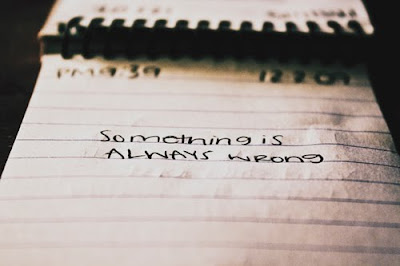 PM 9:39 12.2.09
Something is
ALWAYS wrong